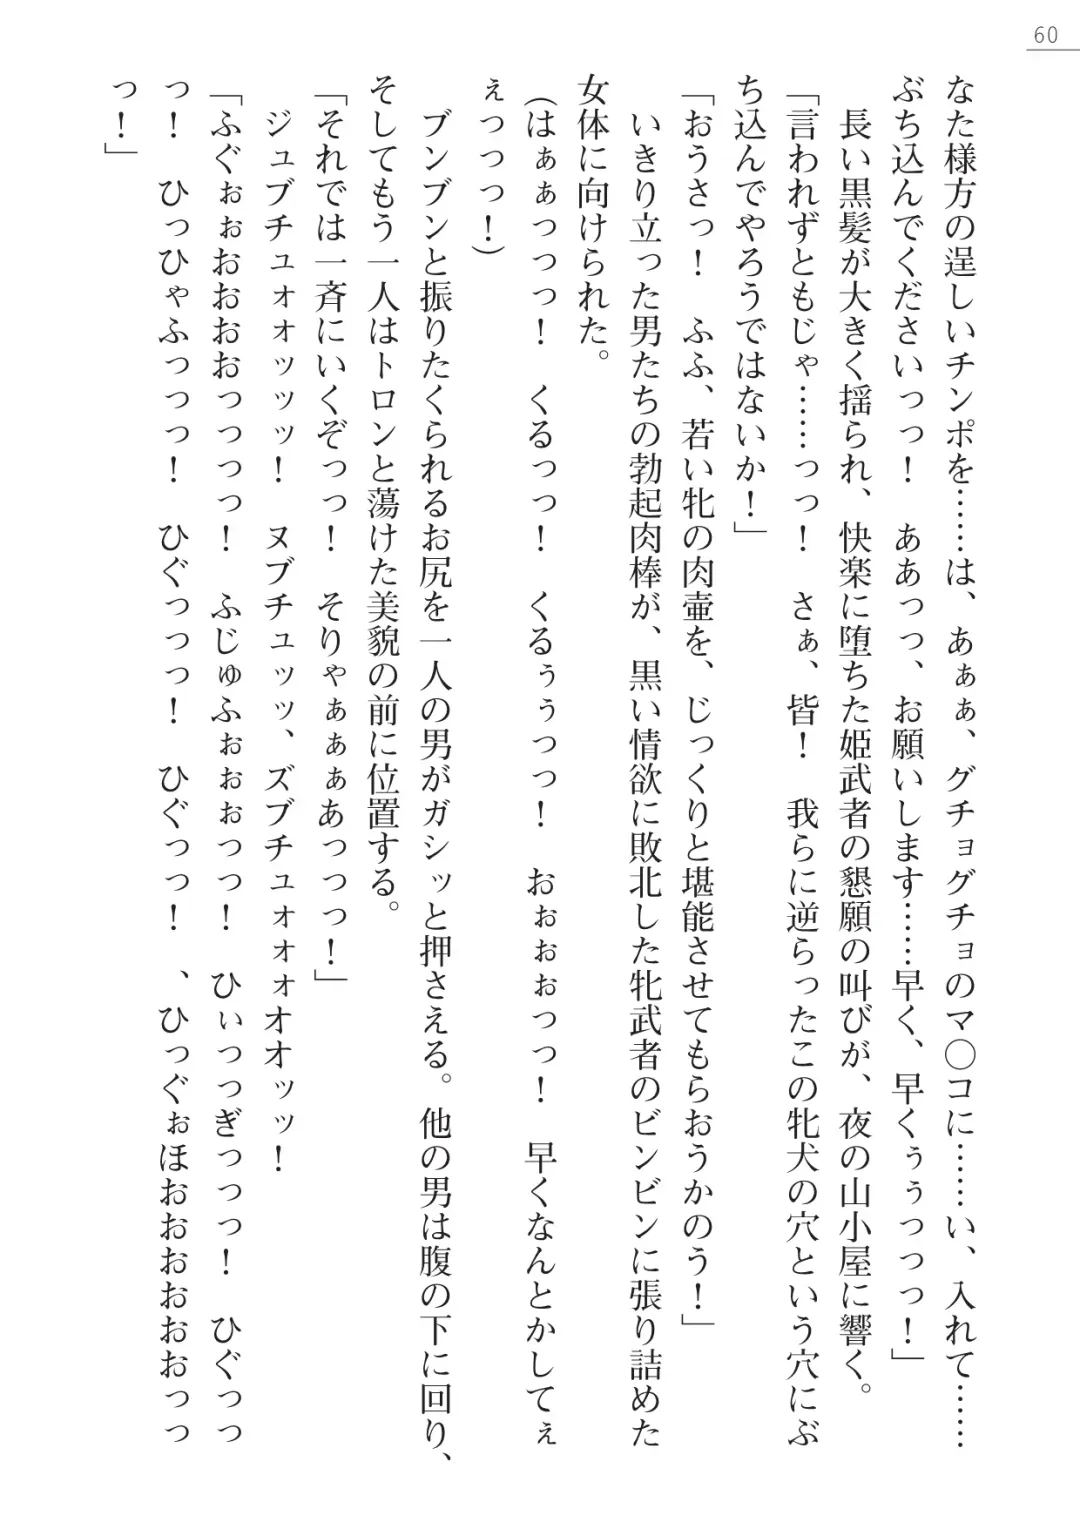 60
なた様方の逞しいチンポを……は、あぁぁ、グチョグチョのマ〇コに……い、入れて……
ぶち込んでくださいっっ！　ああっっ、お願いします……早く、早くぅぅっっっ！」
　長い黒髪が大きく揺られ、快楽に堕ちた姫武者の懇願の叫びが、夜の山小屋に響く。
「言われずともじゃ……っっ！　さぁ、皆！　我らに逆らったこの牝犬の穴という穴にぶ
ち込んでやろうではないか！」
「おうさっ！　ふふ、若い牝の肉壷を、じっくりと堪能させてもらおうかのう！」
　いきり立った男たちの勃起肉棒が、黒い情欲に敗北した牝武者のビンビンに張り詰めた
女体に向けられた。
（はぁぁっっっ！　くるっっ！　くるぅぅっっ！　おぉぉぉっっ！　早くなんとかしてぇ
ぇっっっ！）
　ブンブンと振りたくられるお尻を一人の男がガシッと押さえる。他の男は腹の下に回り、
そしてもう一人はトロンと蕩けた美貌の前に位置する。
「それでは一斉にいくぞっっ！　そりゃぁぁぁあっっっ！」
　ジュブチュォォッッッ！　ヌブチュッッッ、ズブチュォォォオオッッ！
「ふぐぉぉおおおおっっっっ！　ふじゅふぉぉぉっっ！　ひぃっっぎっっっ！　ひぐっっ
っ！　ひっひゃふっっっっ！　ひぐっっっっ！　ひぐっっっ！　、ひっぐぉほおおおおおおっっ
っ！」